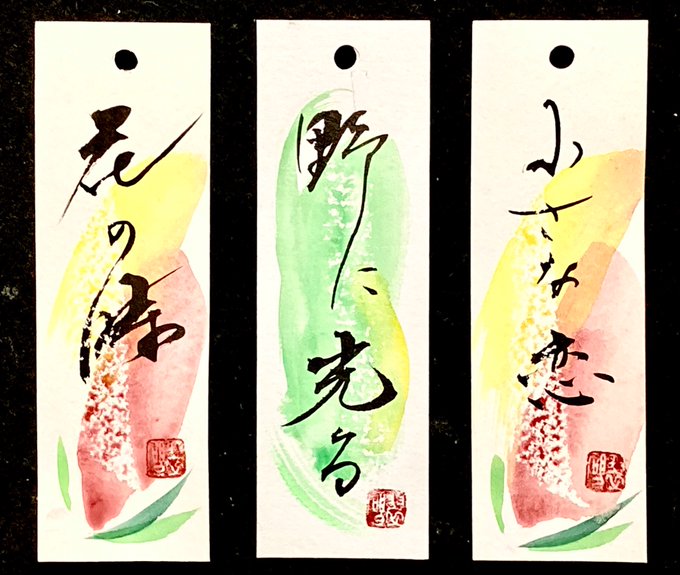 花の
野に光る
小さな恋